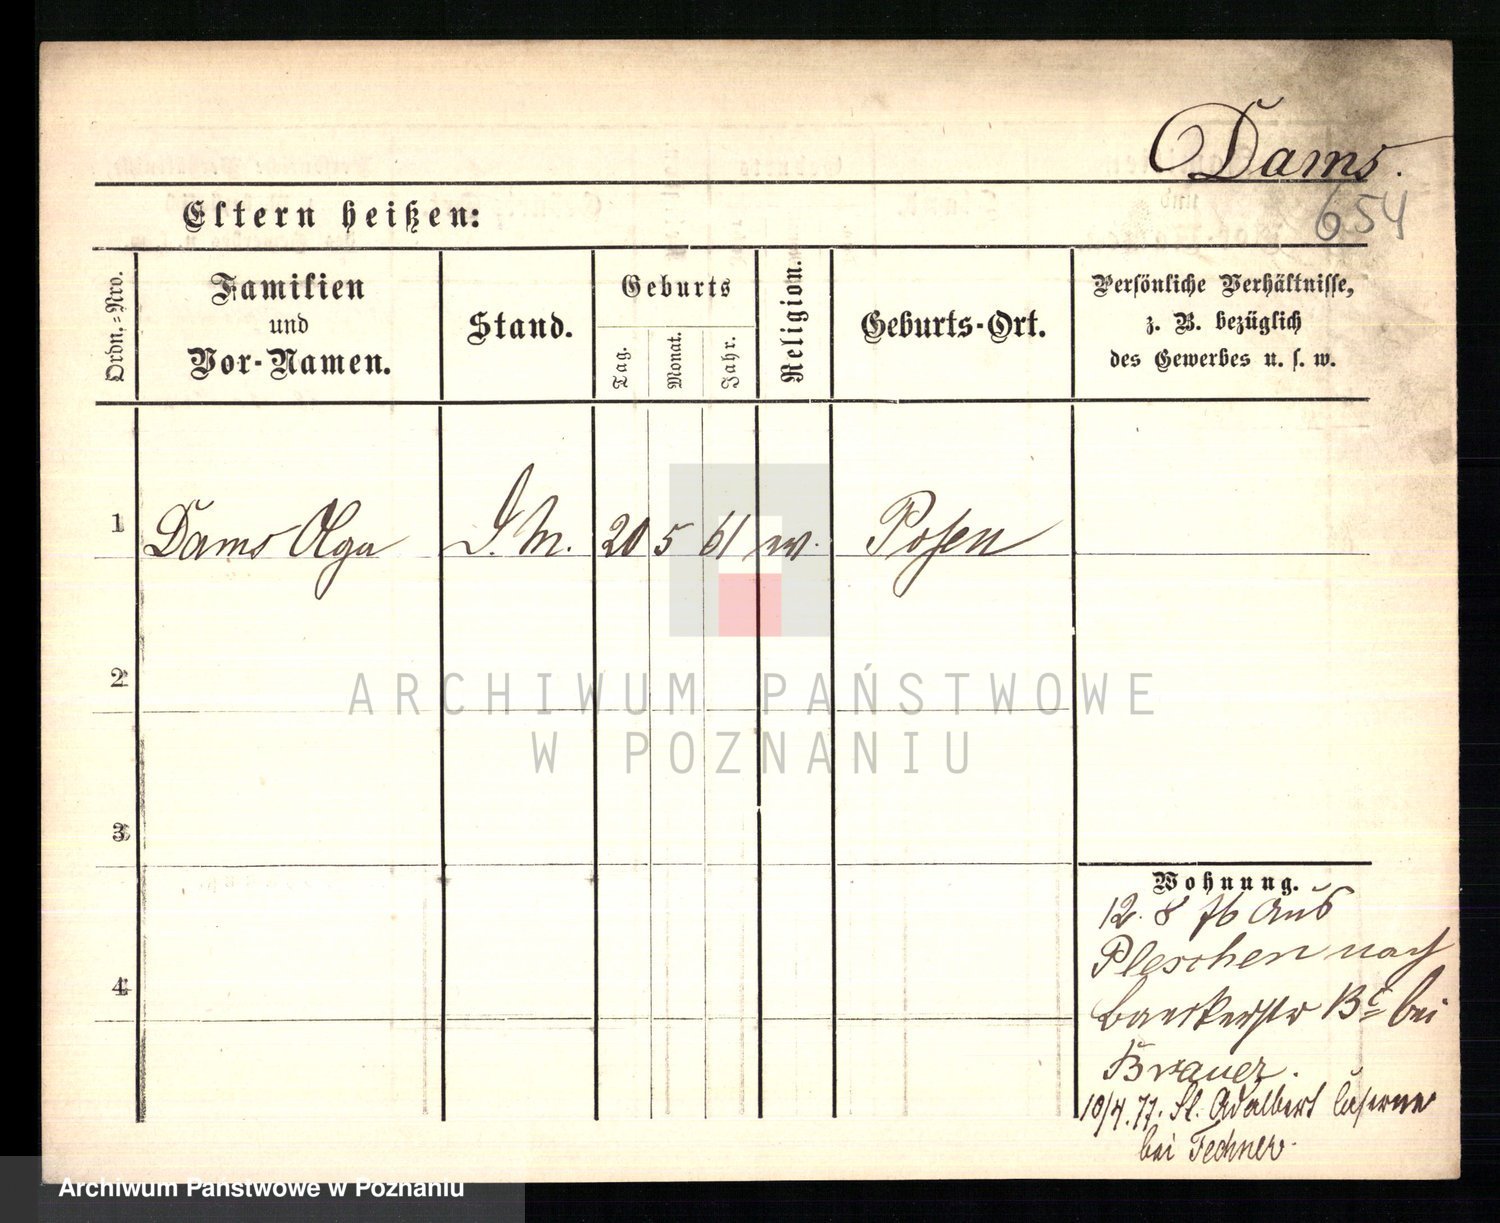 Dams.
654
Eltern heißen:
Ordn.-Nro.
Familien
und
Vor-Namen.
Stand.
Geburts
Tag.
Monat.
Jahr.
Religion.
Geburts-Ort.
Persönliche Verhältnisse,
z. B. bezüglich
des Gewerbes u. s. w.
1 Dams Olga D. M. 20 5 61 ev. Posen
2
3
4
ARCHIWUM PAŃSTWOWE
W POZNANIU
Wohnung.
12. 8 76 aus
Pleschen nach
bei
Brauer.
10/4. 77. St. Adalbert Caserne
bei Fechner.
Archiwum Państwowe w Poznaniu